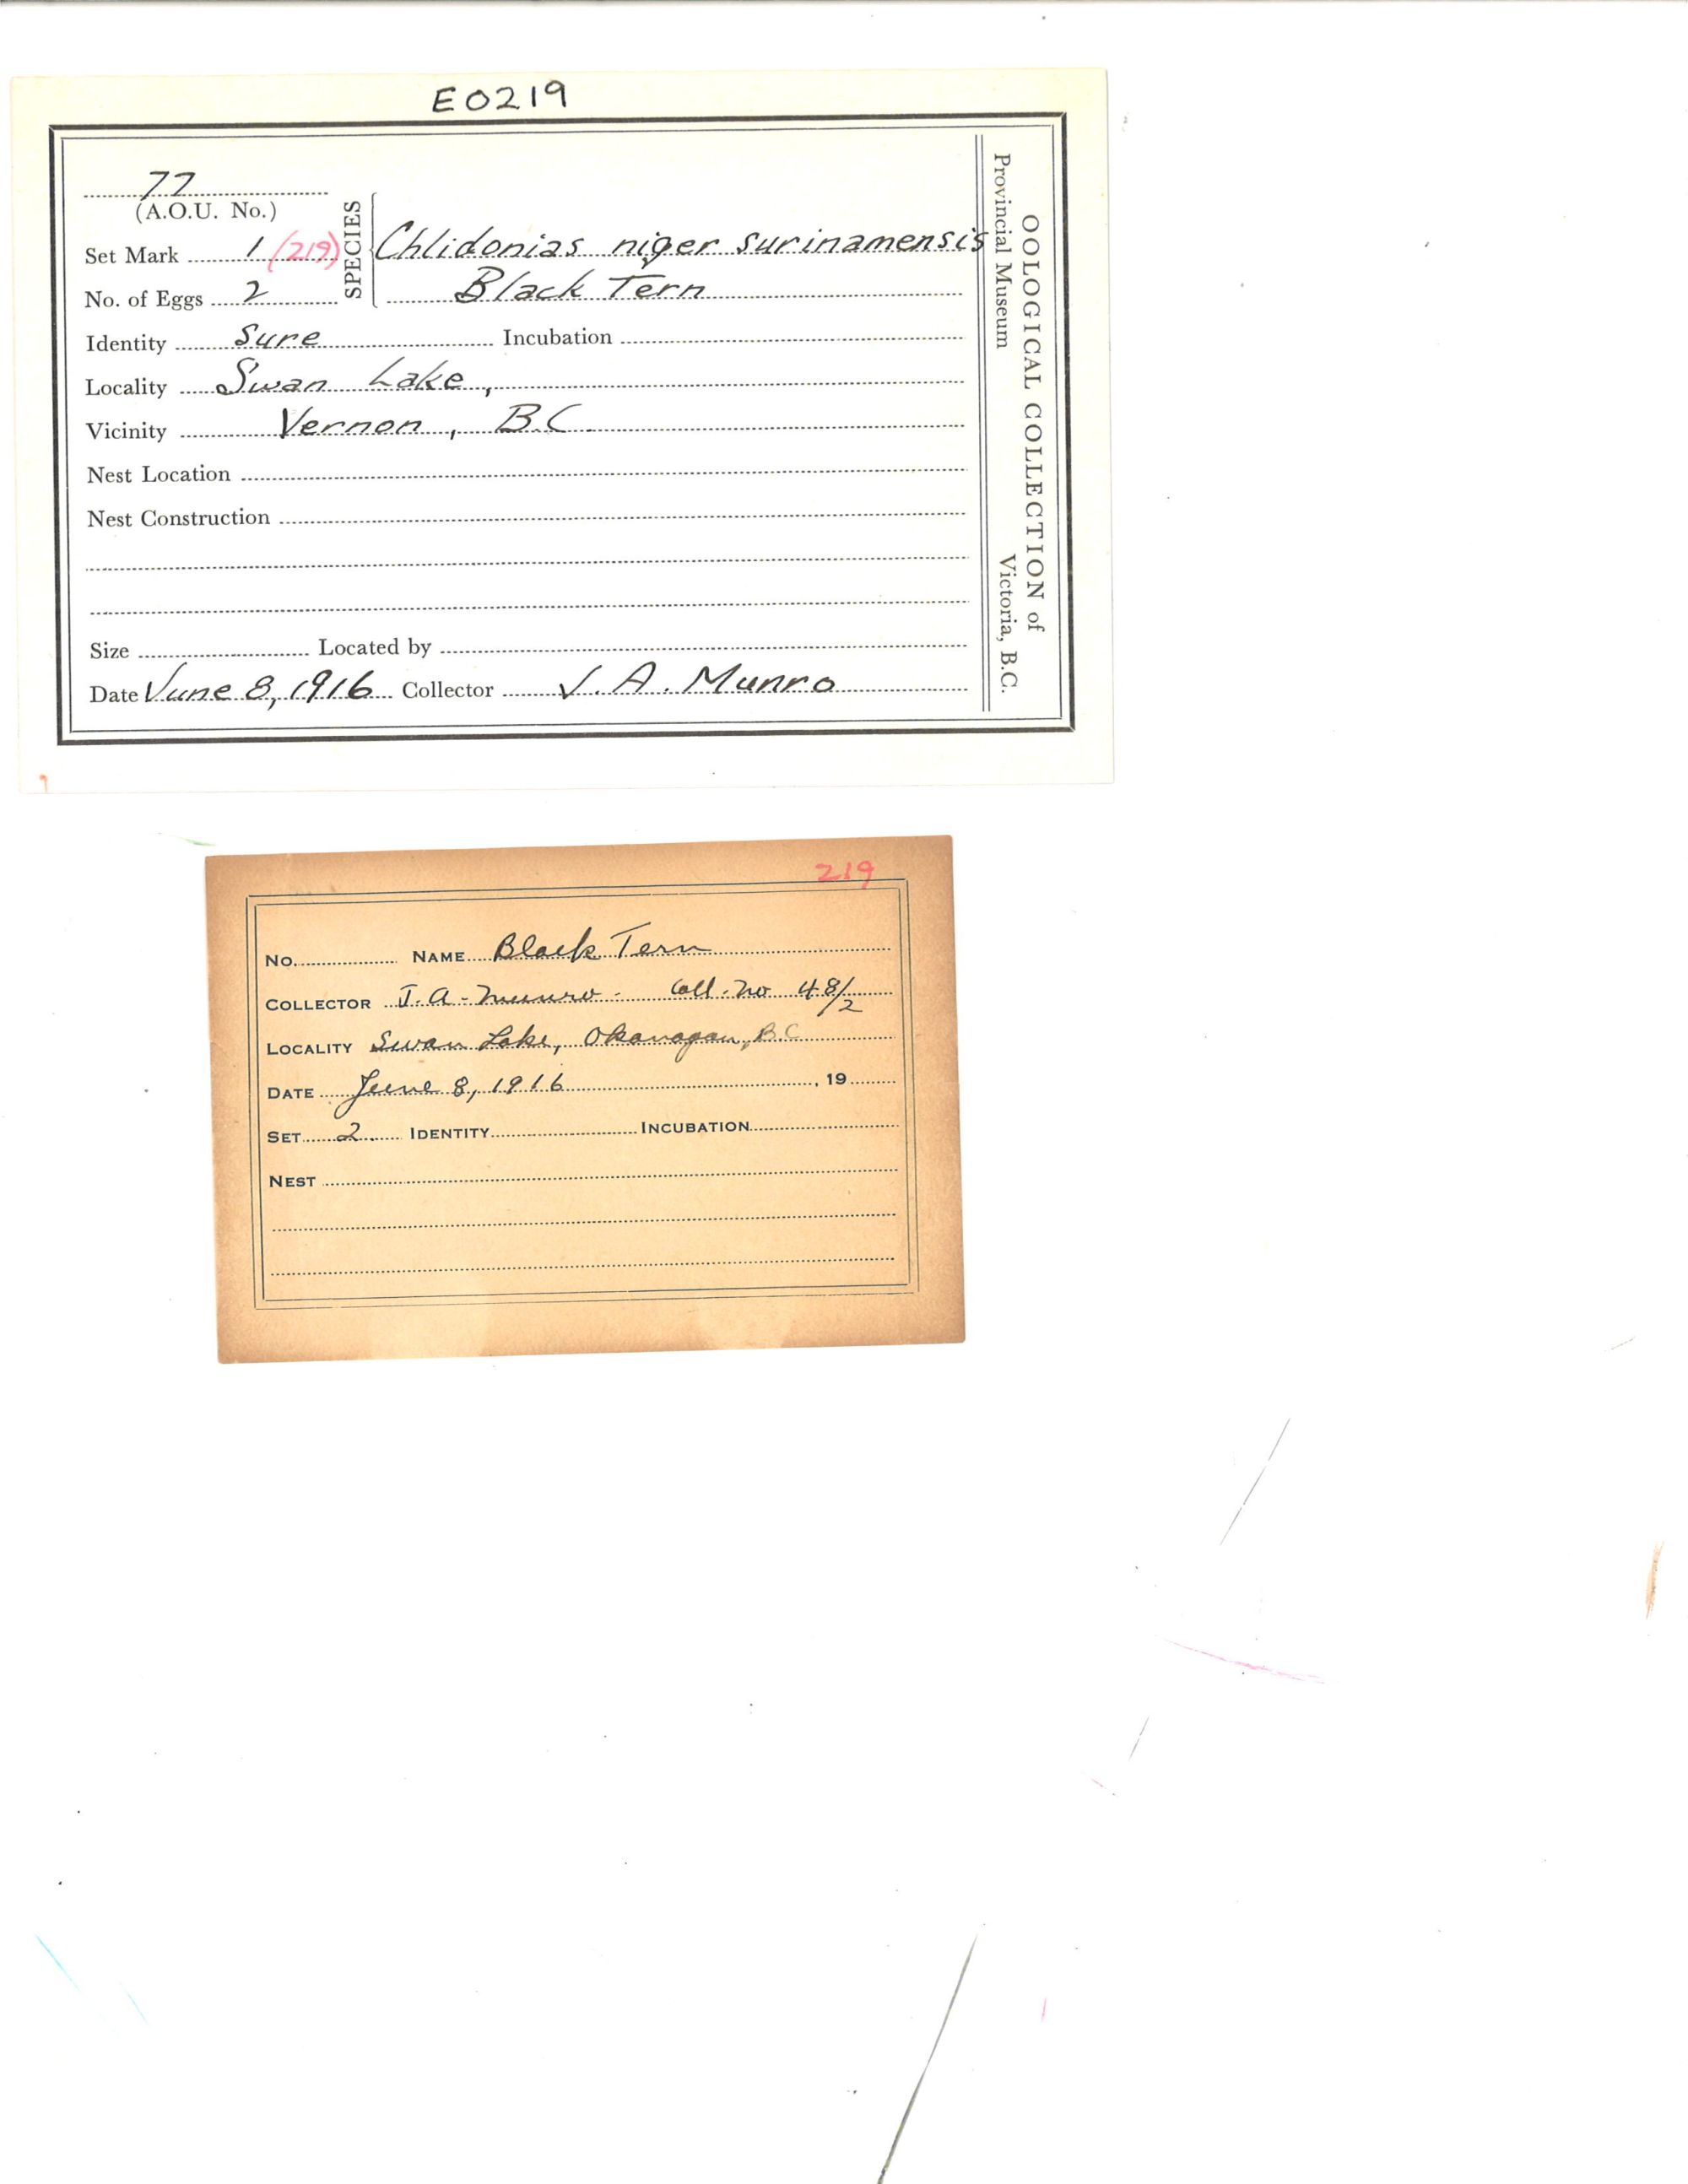 E0219
77
(A.O.U. No.)
Set Mark 1 (219)
No. of Eggs 2
SPECIES
Chlidonias niger surinamensis
Black Tern
Identity Sure Incubation
Locality Swan Lake,
Vicinity Vernon, B.C.
Nest Location
Nest Construction
Size Located by
Date June 8, 1916 Collector J. A. Munro
OOLOGICAL COLLECTION of
Provincial Museum Victoria, B.C.
219
No. NAME Black Tern
COLLECTOR J. A. Munro. Coll. No 48/2
LOCALITY Swan Lake, Okanagan, B.C
DATE June 8, 1916 , 19
SET 2 IDENTITY INCUBATION
NEST